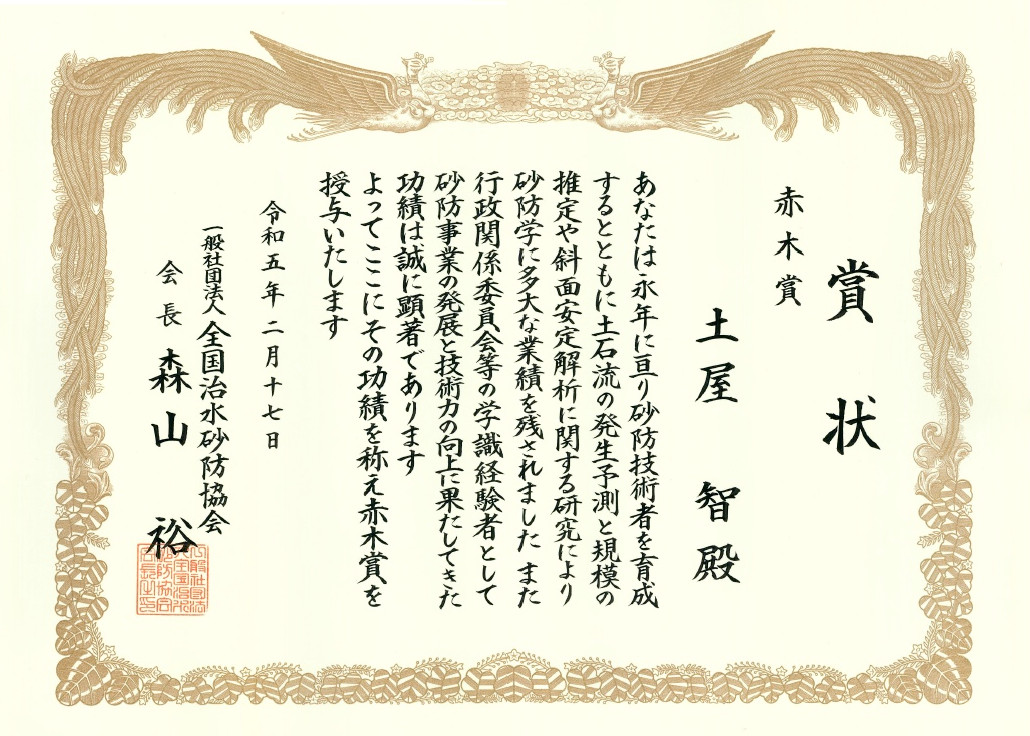 賞状
赤木賞
土屋 智殿
あなたは永年に亘り砂防技術者を育成
するとともに土石流の発生予測と規模の
推定や斜面安定解析に関する研究により
砂防学に多大な業績を残されました また
行政関係委員会等の学識経験者として
砂防事業の発展と技術力の向上に果たしてきた
功績は誠に顕著であります
よってここにその功績を称え赤木賞を
授与いたします
令和五年二月十七日
一般社団法人 全国治水砂防協会
会長 森山 裕